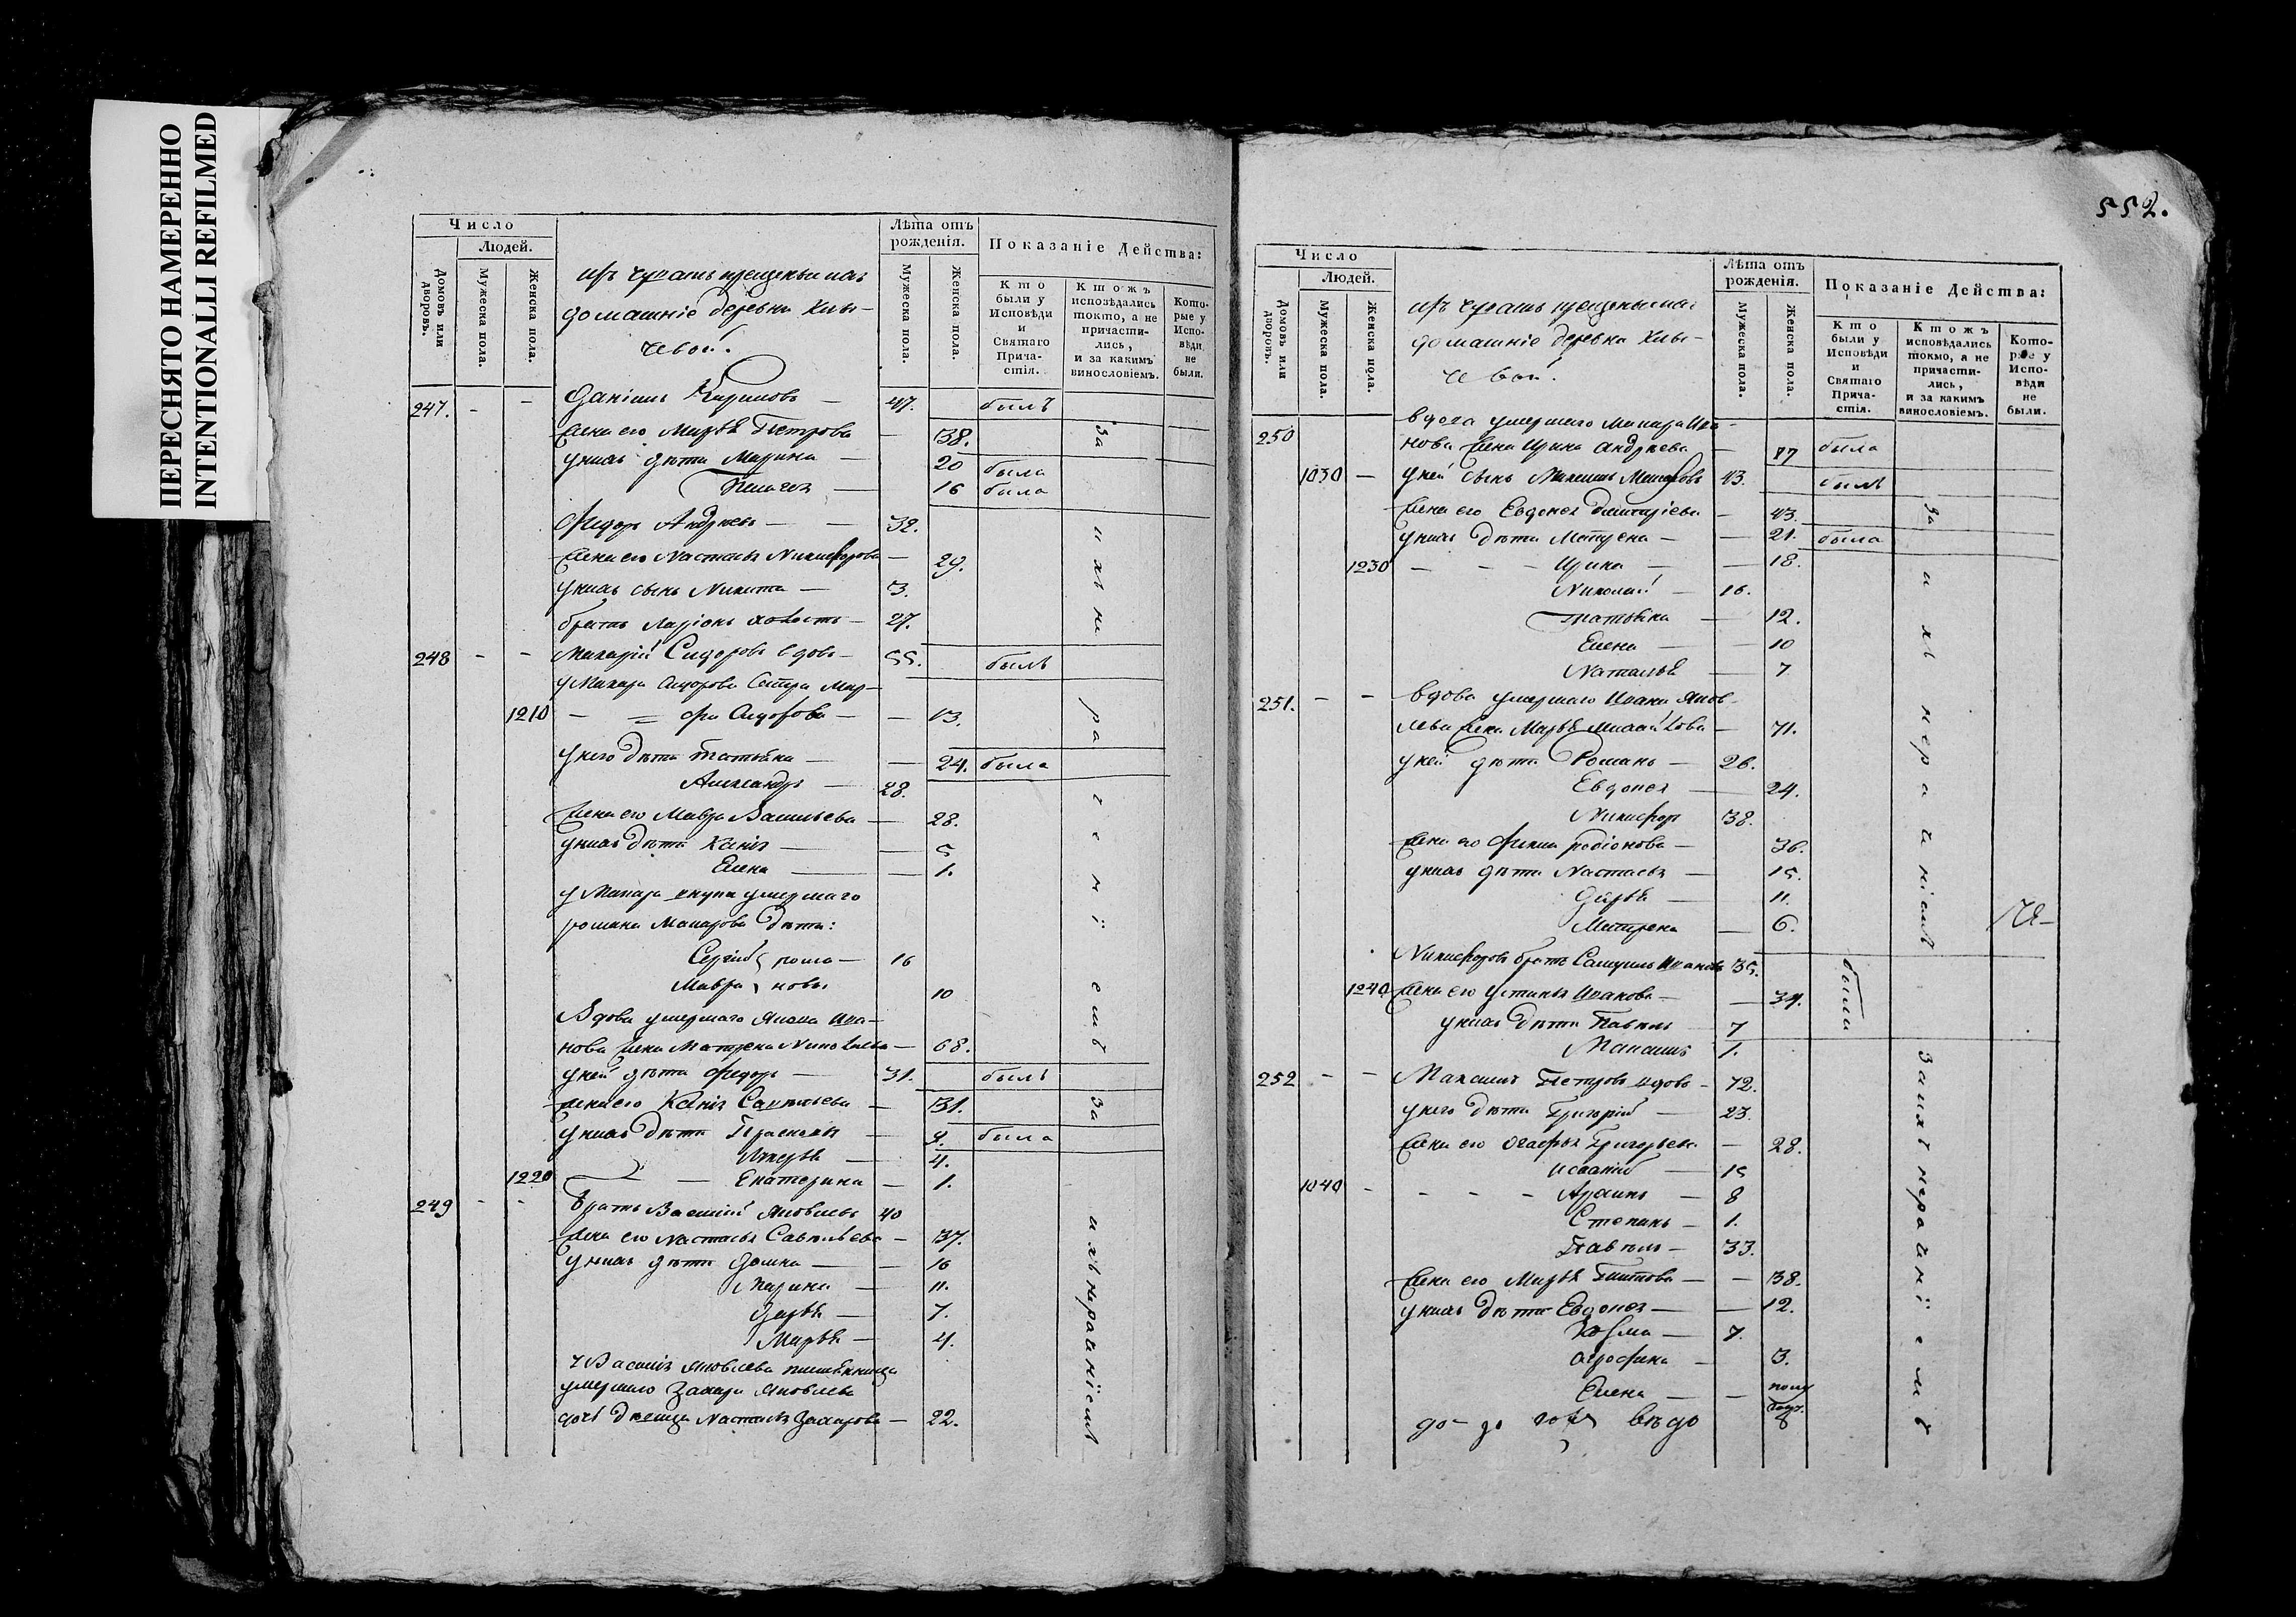 ПЕРЕСНЯТО НАМЕРЕННО
INTENTIONALLI REFILMED
Число
Людей.
Домовъ или дворовъ.
Мужеска пола.
Женска пола.
изъ чувашъ крещеныхъ
домашніе деревни
Лѣта отъ рожденія.
Мужеска пола.
Женска пола.
Показаніе Действа:
Кто были у Исповѣди и Святаго Причастія.
Ктожъ исповѣдались токмо, а не причастились, и за какимъ винословіемъ.
Которые у Исповѣди не были.
247. - - Даніилъ Кириловъ — 47. былъ
жена его Марѳа Петрова — 38.
у нихъ дѣти Марина — 20 была
Пелагея — 16 была
Ѳедоръ Андреевъ — 32.
жена его Настасья Никифорова — 29.
у нихъ сынъ Никита — 3.
братъ Ларіонъ холостъ — 27.
248 - - Макарій Сидоровъ вдовъ — 55. былъ
у Макара Сидорова сестра Мар-
1210 - = фа Сидорова — 13.
у него дѣти Татьяна — 24. была
Александръ — 28.
жена его Мавра Васильева — 28.
у нихъ дѣти Ксенія — 5
Елена — 1.
у Макара внука умершаго
романа Макарова дѣти:
Сергій рома- 16
Мавра новы 10
Вдова умершаго Якова Ива-
нова жена Матрена — 68.
у ней дѣти Ѳедоръ — 31. былъ
жена его Ксенія Савельева — 31.
у нихъ дѣти Прасковья — 9. была
Лукерья — 4.
1220 — Екатерина — 1.
249 - - братъ Василій Яковлевъ 40
жена его Настасья Савельева — 37.
у нихъ дѣти Домна — 16
Марина — 11.
Дарья — 7.
Марѳа — 4.
у Василія Яковлева племянница
умершаго Захара Яковлева
дочь девица Настасья Захарова — 22.
за ихъ нераченіемъ
за ихъ нераченіемъ
552.
Число
Людей.
Домовъ или дворовъ.
Мужеска пола.
Женска пола.
изъ чувашъ крещеныхъ
домашніе деревни
Лѣта отъ рожденія.
Мужеска пола.
Женска пола.
Показаніе Действа:
Кто были у Исповѣди и Святаго Причастія.
Ктожъ исповѣдались токмо, а не причастились, и за какимъ винословіемъ.
Которые у Исповѣди не были.
вдова умершаго Макара Ива-
250 нова жена Ирина Андреева — была
1030 — у ней сынъ Максимъ Макаровъ 43. былъ
жена его Евдокея Дмитріева — 43.
у нихъ дѣти Матрена — 21. была
1230 - - - Ирина — 18.
Николай — 16.
Татьяна — 12.
Елена — 10
Наталья — 7
251. - - вдова умершаго Ивана Яков-
лева жена Марѳа — 71.
у ней дѣти Романъ — 26.
Евдокея — 24.
Никифоръ 38.
жена его Ѳекла родіонова — 36.
у нихъ дѣти Настасья — 15.
Дарья — 11.
Матрена — 6.
Никифоровъ братъ Самуилъ Ивановъ 35.
1240 жена его Устинья Иванова — 34.
у нихъ дѣти Павелъ 7
Максимъ 1.
были
252 - - Максимъ Петровъ вдовъ - 72.
у него дѣти Григорій — 23.
жена его Агафья Григорьева — 28.
Исаакій — 15
1040 - - - - 8
Степанъ — 1.
Павелъ — 33.
жена его Марѳа Титова — 38.
у нихъ дѣти Евдокея — 12.
Козма — 7.
Агрофина — 3.
Елена — полу
году.
за ихъ нераченіемъ
за ихъ нераченіемъ